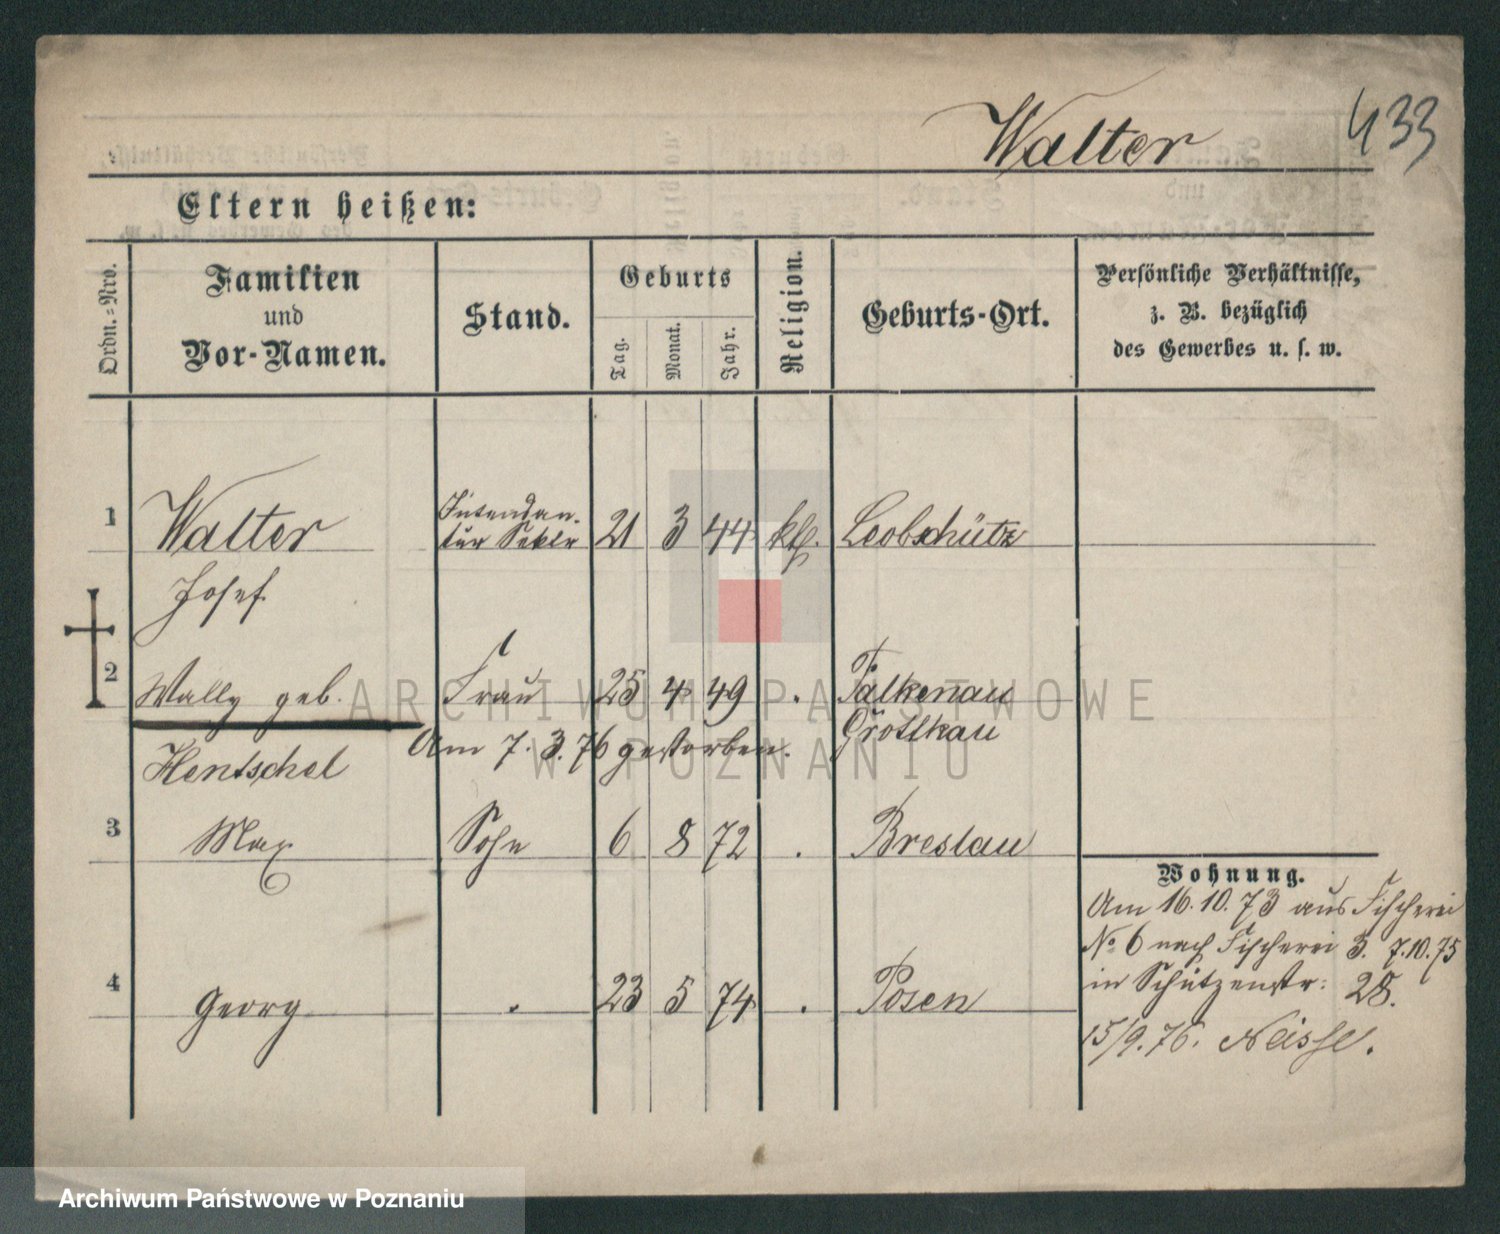 Walter 433
Eltern heißen:
Ordn.=Nro.
Familien
und
Vor-Namen.
Stand.
Geburts
Tag.
Monat.
Jahr.
Religion.
Geburts-Ort.
Persönliche Verhältnisse,
z. B. bezüglich
des Gewerbes u. s. w.
1 Walter Intendan- 21 3 44 kth. Leobschütz
tur Sekr
Josef
2 Wally geb. Frau 25 4 49 . Falkenau
Grottkau
Am 7. 3. 76 gestorben.
Hentschel
3 Max Sohn 6 8 72 . Breslau
4 Georg . 23 5 74 . Posen
Wohnung.
Am 16. 10. 73 aus Fischerei
No 6 nach Fischerei 3. 7.10.75
in Schützenstr: 28.
15/9. 76. Neisse.
ARCHIWUM PAŃSTWOWE
W POZNANIU
Archiwum Państwowe w Poznaniu